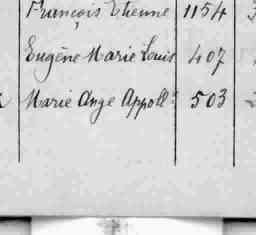 François Etienne 1154
Eugène Marie Louis 407
Marie Ange Appoll.e 503